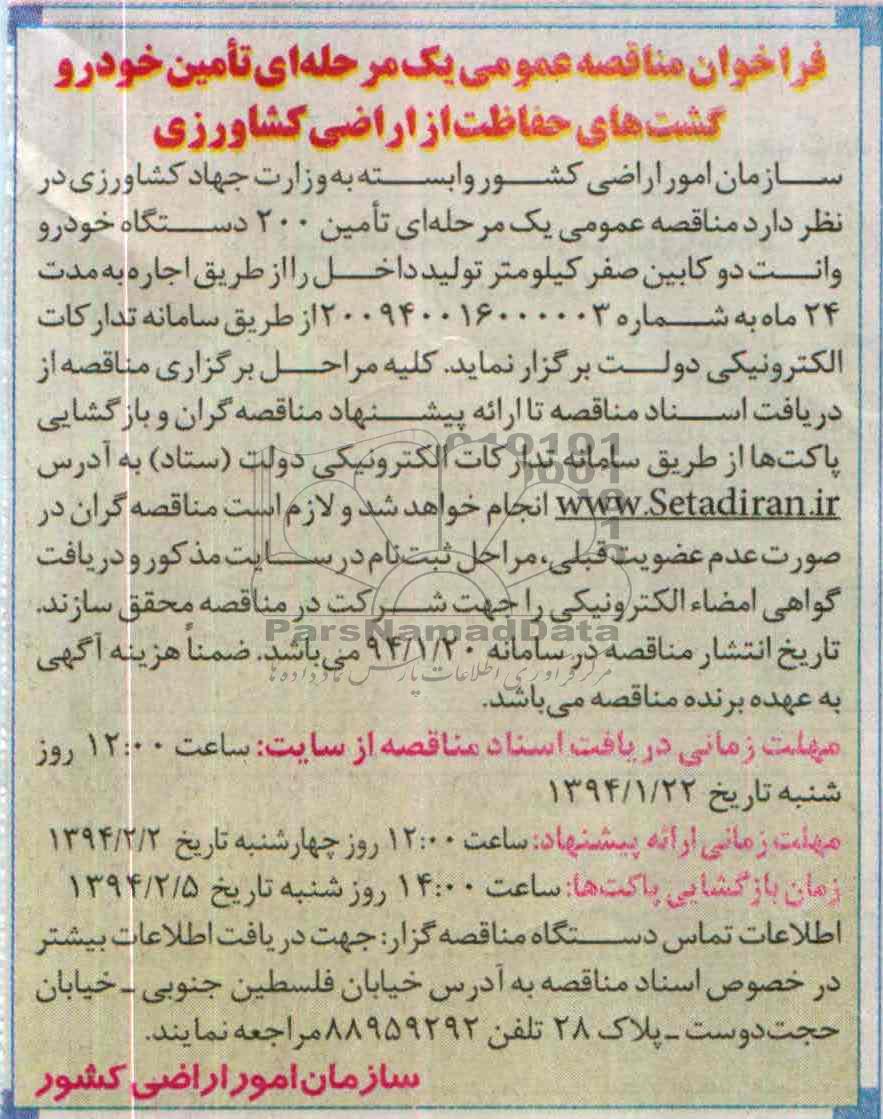 فراخوان مناقصه عمومی یک مرحله‌ای تأمین خودرو
گشت‌های حفاظت از اراضی کشاورزی
سازمان امور اراضی کشور وابسته به وزارت جهاد کشاورزی در
نظر دارد مناقصه عمومی یک مرحله‌ای تأمین ۲۰۰ دستگاه خودرو
وانت دو کابین صفر کیلومتر تولید داخل را از طریق اجاره به مدت
۲۴ ماه به شماره ۲۰۰۹۴۰۰۱۶۰۰۰۰۰۳ از طریق سامانه تدارکات
الکترونیکی دولت برگزار نماید. کلیه مراحل برگزاری مناقصه از
دریافت اسناد مناقصه تا ارائه پیشنهاد مناقصه‌گران و بازگشایی
پاکت‌ها از طریق سامانه تدارکات الکترونیکی دولت (ستاد) به آدرس
www.Setadiran.ir انجام خواهد شد و لازم است مناقصه گران در
صورت عدم عضویت قبلی، مراحل ثبت‌نام در سایت مذکور و دریافت
گواهی امضاء الکترونیکی را جهت شرکت در مناقصه محقق سازند.
ParsNamadData
تاریخ انتشار مناقصه در سامانه ۹۴/۱/۲۰ می‌باشد. ضمناً هزینه آگهی
مرکز فرآوری اطلاعات پارس نماد داده ها
به عهده برنده مناقصه می‌باشد.
مهلت زمانی دریافت اسناد مناقصه از سایت: ساعت ۱۲:۰۰ روز
شنبه تاریخ ۱۳۹۴/۱/۲۲
مهلت زمانی ارائه پیشنهاد: ساعت ۱۲:۰۰ روز چهارشنبه تاریخ ۱۳۹۴/۲/۲
زمان بازگشایی پاکت‌ها: ساعت ۱۴:۰۰ روز شنبه تاریخ ۱۳۹۴/۲/۵
اطلاعات تماس دستگاه مناقصه گزار: جهت دریافت اطلاعات بیشتر
در خصوص اسناد مناقصه به آدرس خیابان فلسطین جنوبی ـ خیابان
حجت‌دوست ـ پلاک ۲۸ تلفن ۸۸۹۵۹۲۹۲ مراجعه نمایند.
سازمان امور اراضی کشور